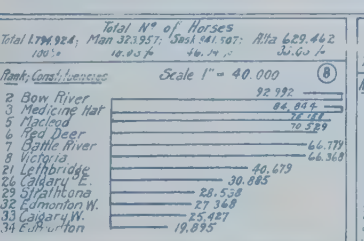 Total Nº of Horses
Total 1,794,924; Man 323,957; Sask 841,507; Alta 629,462
100%
Rank; Constituencies Scale 1" = 40.000 8
2 Bow River 92 992
3 Medicine Hat 84,844
5 Macleod
6 Red Deer 70 529
7 Battle River 66.779
8 Victoria 66.368
21 Lethbridge 40.679
26 Calgary E. 30.885
29 Strathcona 28.538
32 Edmonton W. 27 368
33 Calgary W. 25.427
34 Edmonton 19.895